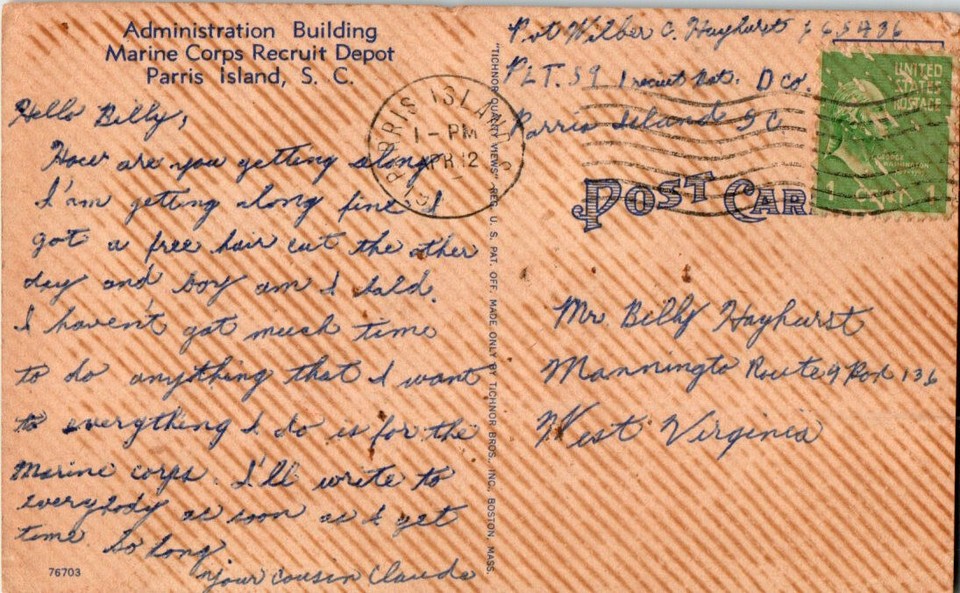 Administration Building
Marine Corps Recruit Depot
Parris Island, S. C.
Hello Billy,
How are you getting along
I'am getting along fine I
got a free hair cut the other
day and boy am I bald.
I haven't got much time
to do anything that I want
to everything I do is for the
Marine corps. I'll write to
everybody as soon as I get
time So long.
your cousin Claude
76703
"TICHNOR QUALITY VIEWS" REG. U. S. PAT. OFF. MADE ONLY BY TICHNOR BROS., INC., BOSTON, MASS.
PARRIS ISLAND S. C.
1 - PM
APR 12
Pvt Wilber C. Hayhurst
PLT. 59 1 recruit Bat. D co.
Parris Island S C
UNITED
STATES
POSTAGE
GEORGE
WASHINGTON
1 CENT 1
POST CAR
Mr. Billy Hayhurst
Mannington Route 9 Box 136
West Virginia